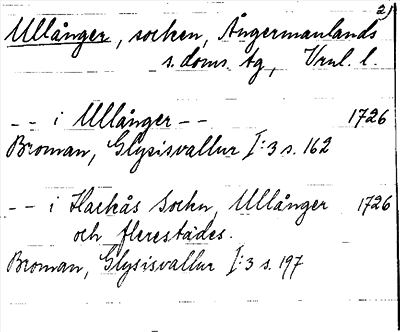 2)
Ullånger, socken, Ångermanlands
s. doms. tg, Vnl. l.
-- i Ullånger -- 1726
Broman, Glysisvallur I:3 s. 162
-- i Hackås Sockn, Ullånger 1726
och flerestädes.
Broman, Glysisvallur I:3 s. 197